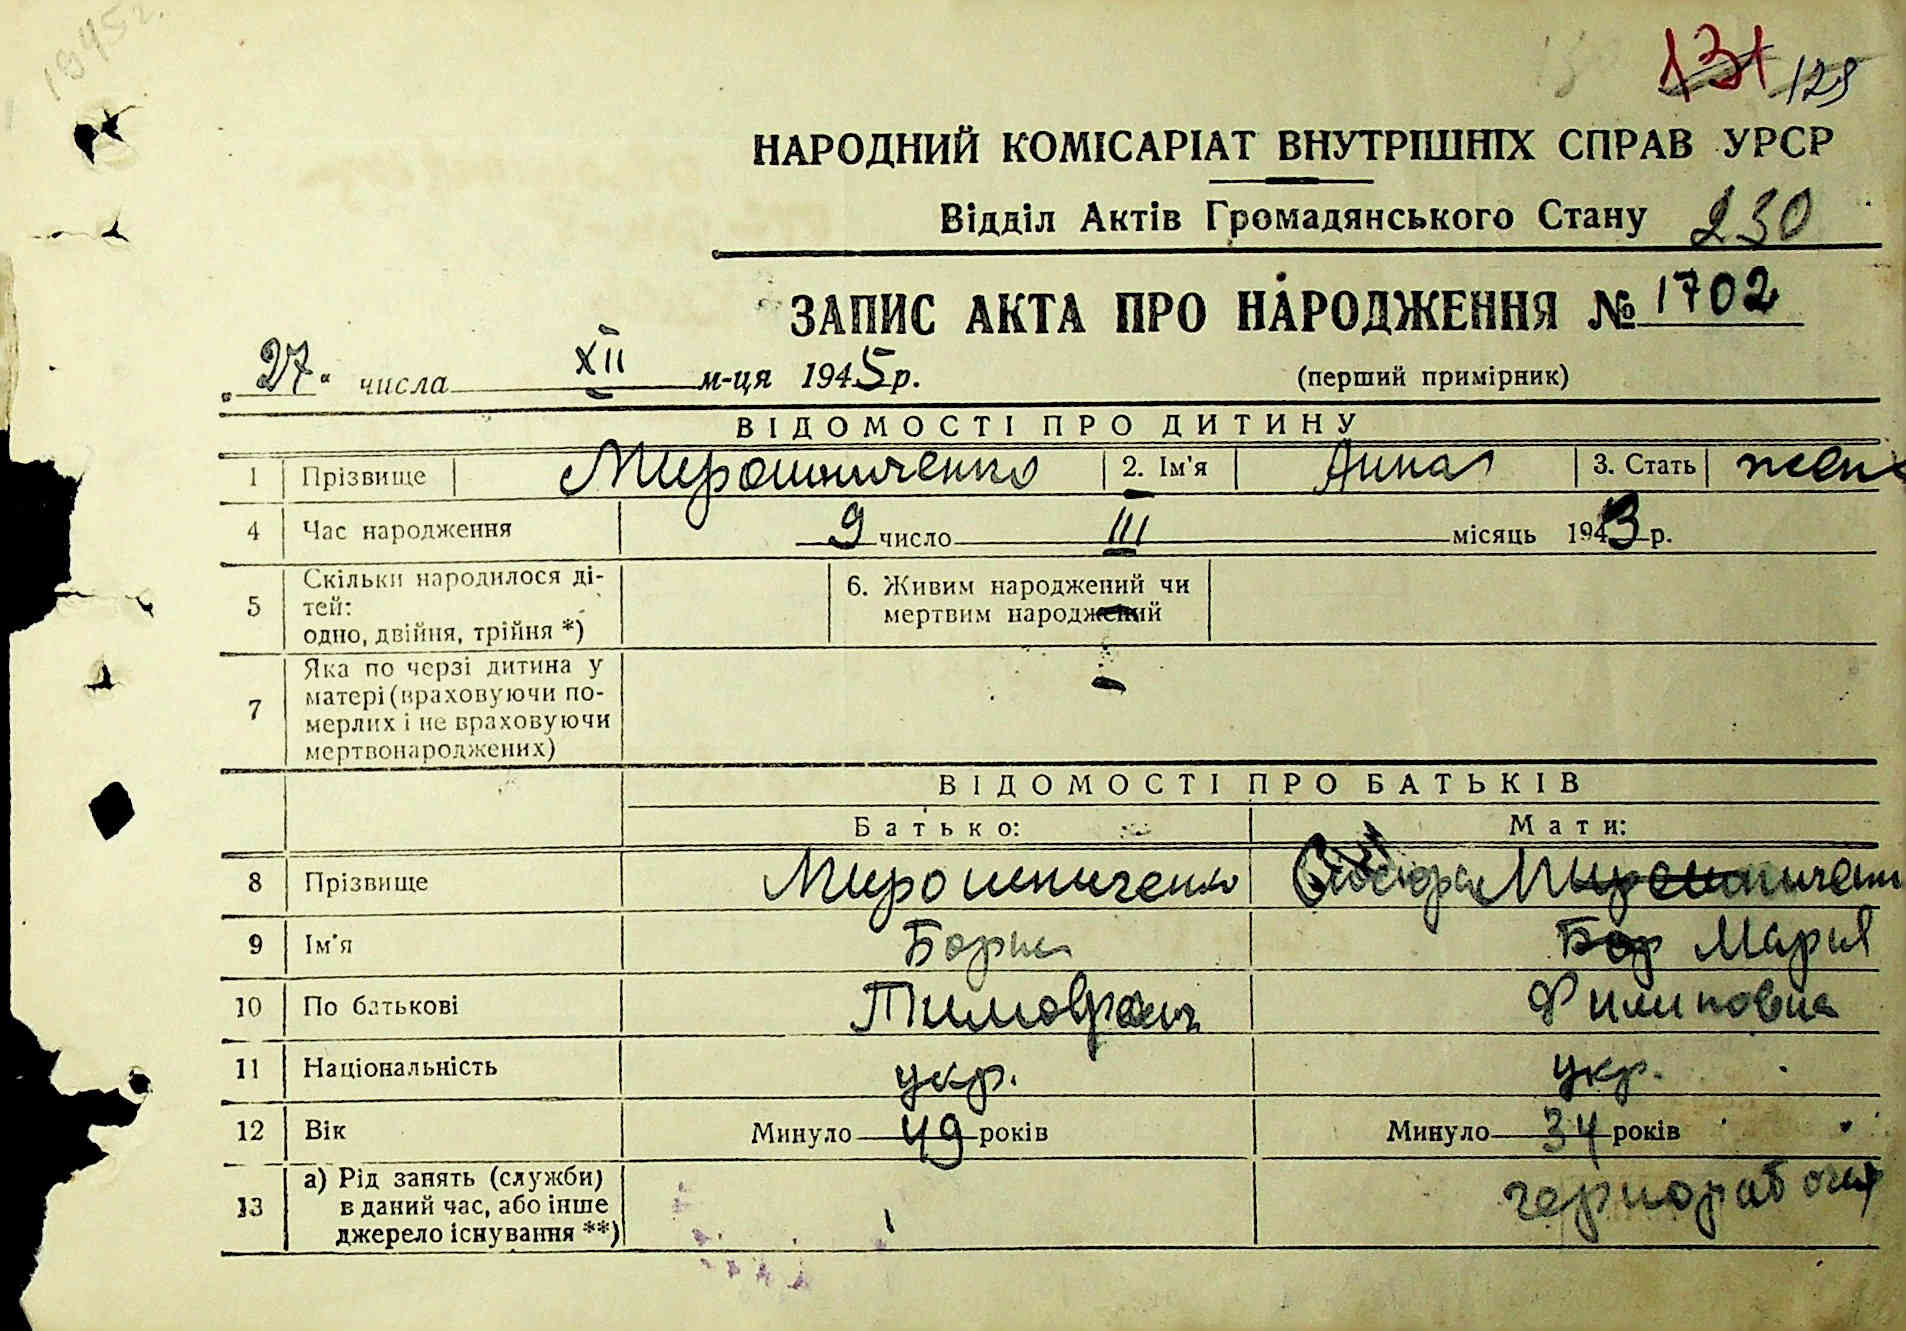 1945 г.
131 129
НАРОДНИЙ КОМІСАРІАТ ВНУТРІШНІХ СПРАВ УРСР
Відділ Актів Громадянського Стану 230
ЗАПИС АКТА ПРО НАРОДЖЕННЯ № 1702
„27“ числа XII м-ця 1945 р. (перший примірник)
ВІДОМОСТІ ПРО ДИТИНУ
1 Прізвище Мирошниченко 2. Ім'я Анна 3. Стать жен
4 Час народження 9 число III місяць 1943 р.
5 Скільки народилося ді-
тей:
одно, двійня, трійня *)
6. Живим народжений чи
мертвим народжений
7 Яка по черзі дитина у
матері (враховуючи по-
мерлих і не враховуючи
мертвонароджених)
ВІДОМОСТІ ПРО БАТЬКІВ
Батько: Мати:
8 Прізвище Мирошниченко Мирошниченко
9 Ім'я Борис Бор Мария
10 По батькові Тимофеевич Филиповна
11 Національність укр. укр.
12 Вік Минуло 49 років Минуло 34 років
13 а) Рід занять (служби)
в даний час, або інше
джерело існування **)
чернорабочая